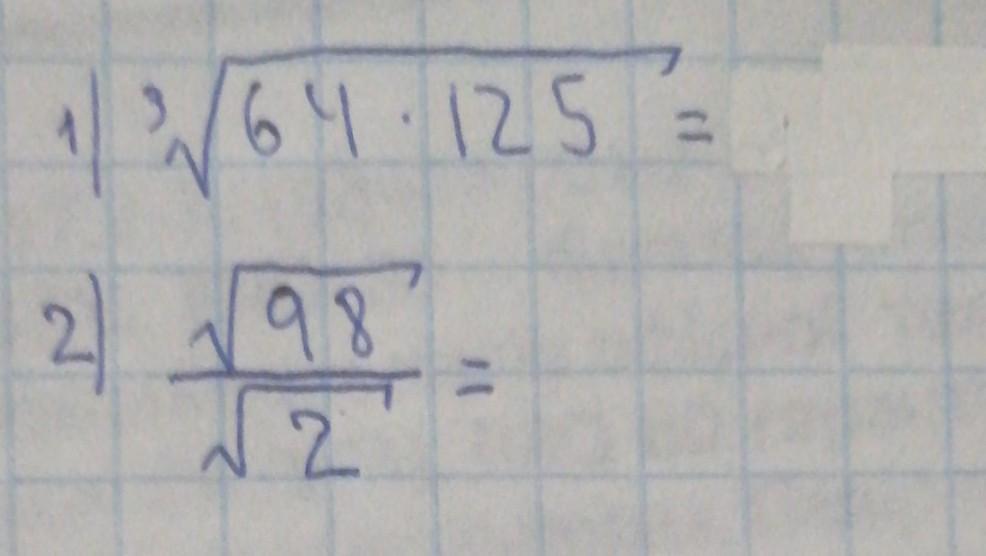 1) ∛64·125 =
2) √98/√2 =